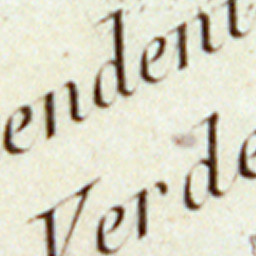 endent
Verde